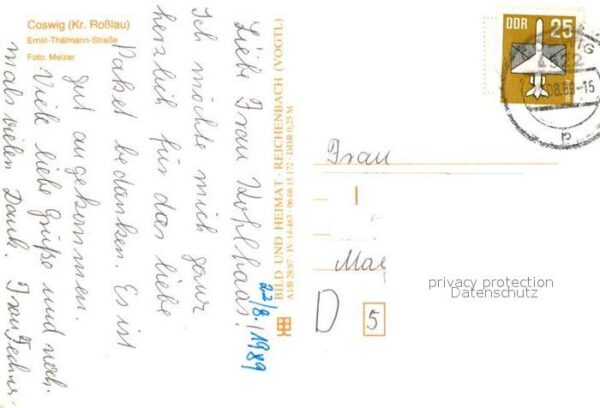 Coswig (Kr. Roßlau)
Ernst-Thälmann-Straße
Foto: Melzer
Liebe Frau Kohlhaas!
Ich möchte mich ganz
herzlich für das liebe
Paket bedanken. Es ist
gut angekommen.
Viele liebe Grüße und noch-
mals vielen Dank. Frau
22/8. 1989
BILD UND HEIMAT · REICHENBACH (VOGTL)
A1/B 28/87 · IV-14-483 · 06 08 15 172 · DDR 0,25 M
DDR 25
Frau
D 5
privacy protection
Datenschutz